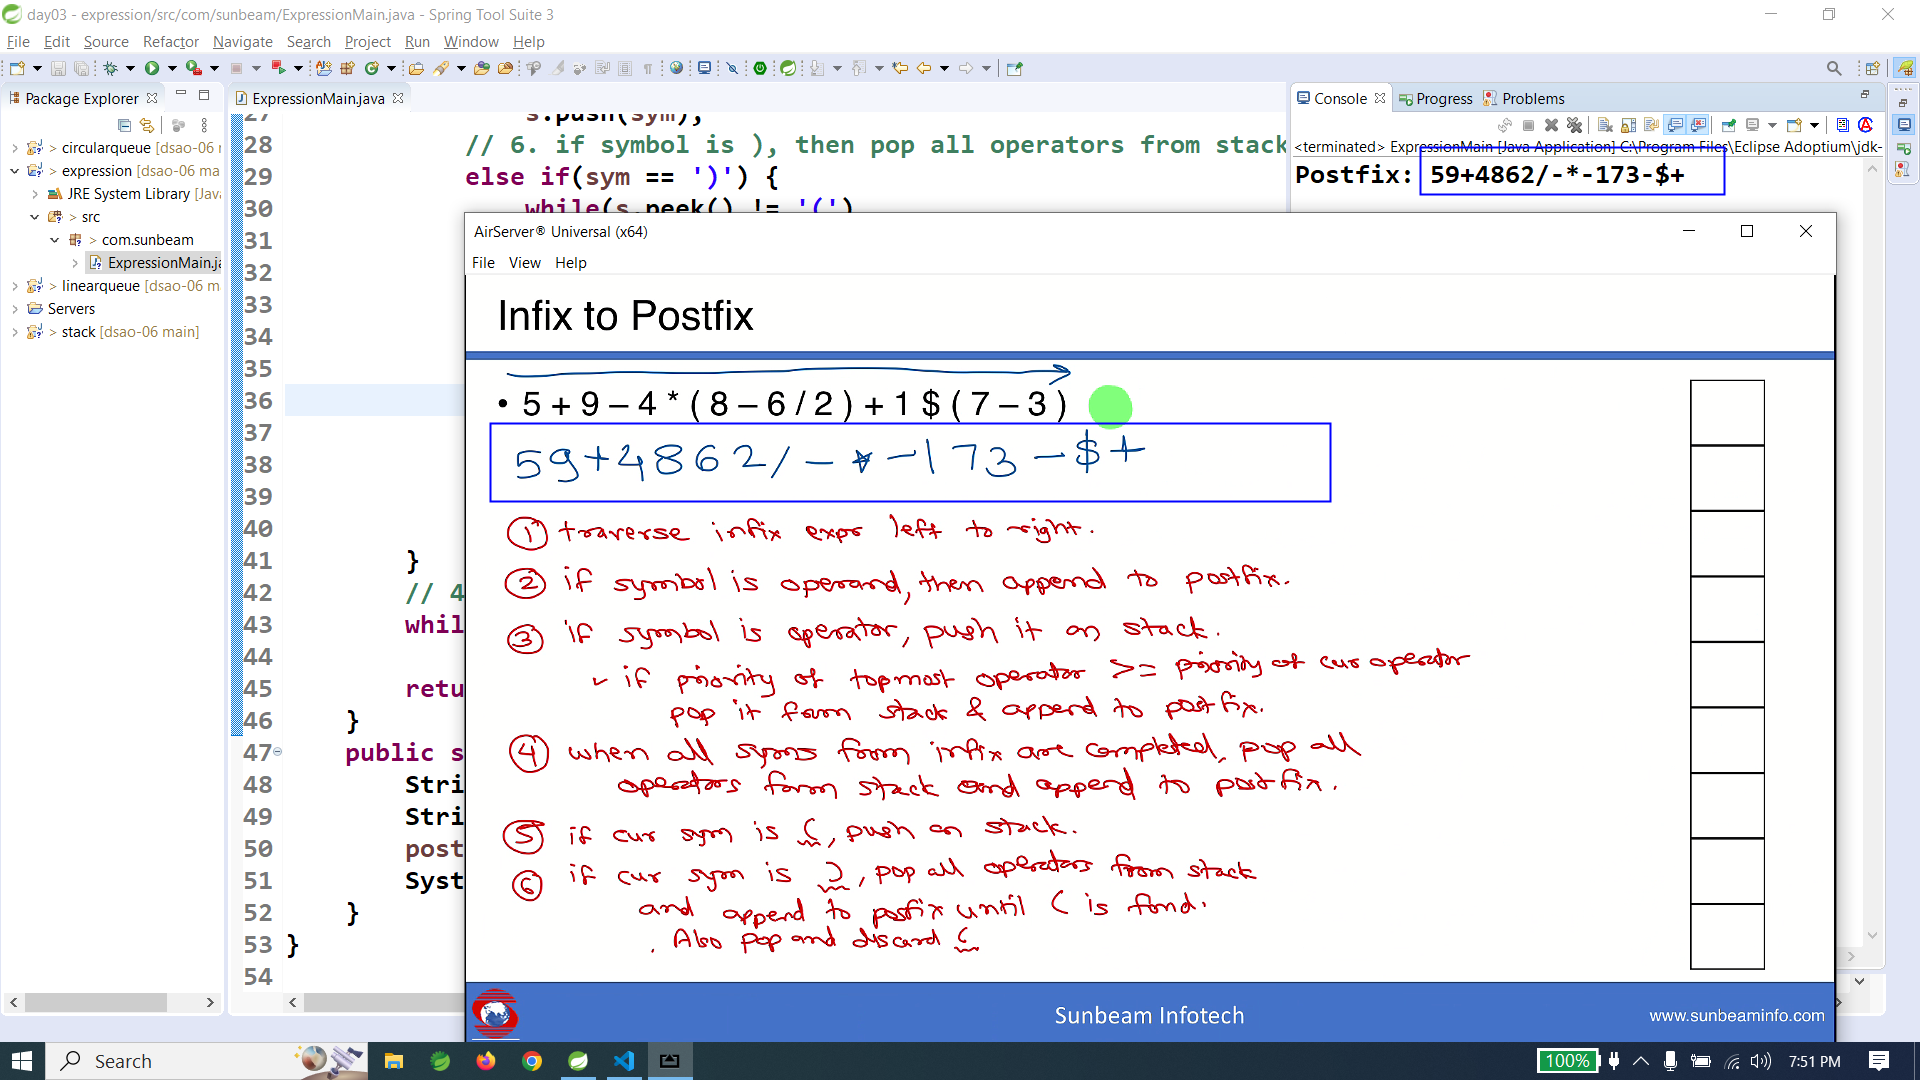 day03 - expression/src/com/sunbeam/ExpressionMain.java - Spring Tool Suite 3
File Edit Source Refactor Navigate Search Project Run Window Help
Package Explorer
circularqueue [dsao-06
expression [dsao-06 ma
JRE System Library [Java
> src
> com.sunbeam
ExpressionMain.ja
> linearqueue [dsao-06 m
Servers
> stack [dsao-06 main]
ExpressionMain.java
27 s.push(sym);
28 // 6. if symbol is ), then pop all operators from stack
29 else if(sym == ')') {
30 while(s.peek() != '(')
31
32
33
34
35
36
37
38
39
40
41 }
42 // 4
43 whil
44
45 retu
46 }
47 public s
48 Stri
49 Stri
50 post
51 Syst
52 }
53 }
54
Console Progress Problems
<terminated> ExpressionMain [Java Application] C:\Program Files\Eclipse Adoptium\jdk-
Postfix: 59+4862/-*-173-$+
AirServer® Universal (x64)
File View Help
Infix to Postfix
• 5 + 9 – 4 * ( 8 – 6 / 2 ) + 1 $ ( 7 – 3 )
59+4862/-*-173-$+
① traverse infix expr left to right.
② if symbol is operand, then append to postfix.
③ if symbol is operator, push it on stack.
✓ if priority of topmost operator >= priority of cur operator
pop it from stack & append to postfix.
④ when all syms from infix are completed, pop all
operators from stack and append to postfix.
⑤ if cur sym is (, push on stack.
⑥ if cur sym is ), pop all operators from stack
and append to postfix until ( is fond.
. Also pop and discard (
Sunbeam Infotech
www.sunbeaminfo.com
Search
100%
7:51 PM